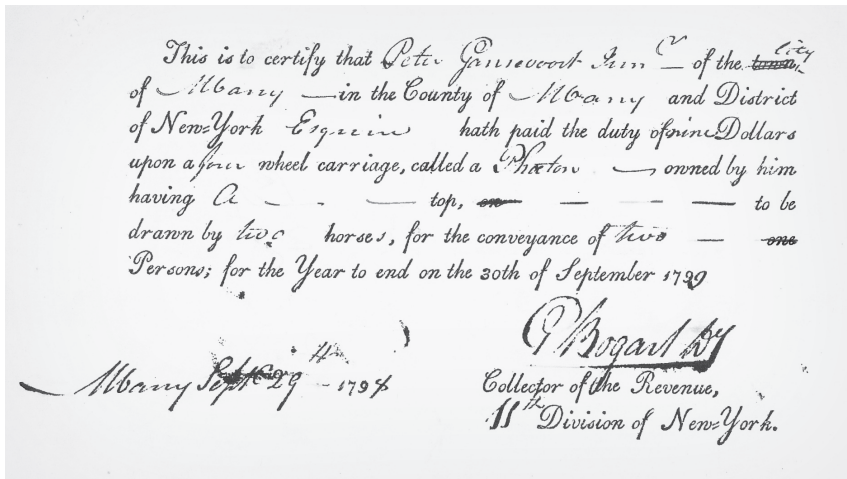 This is to certify that Peter Gansevoort Junr of the town City
of Albany in the County of Albany and District
of New=York Esquire hath paid the duty of nine Dollars
upon a four wheel carriage, called a Phæton owned by him
having A top, to be
drawn by two horses, for the conveyance of two one
Persons; for the Year to end on the 30th of September 1799
Albany Sept 29th 1798
G Bogart Dy
Collector of the Revenue,
11th Division of New=York.